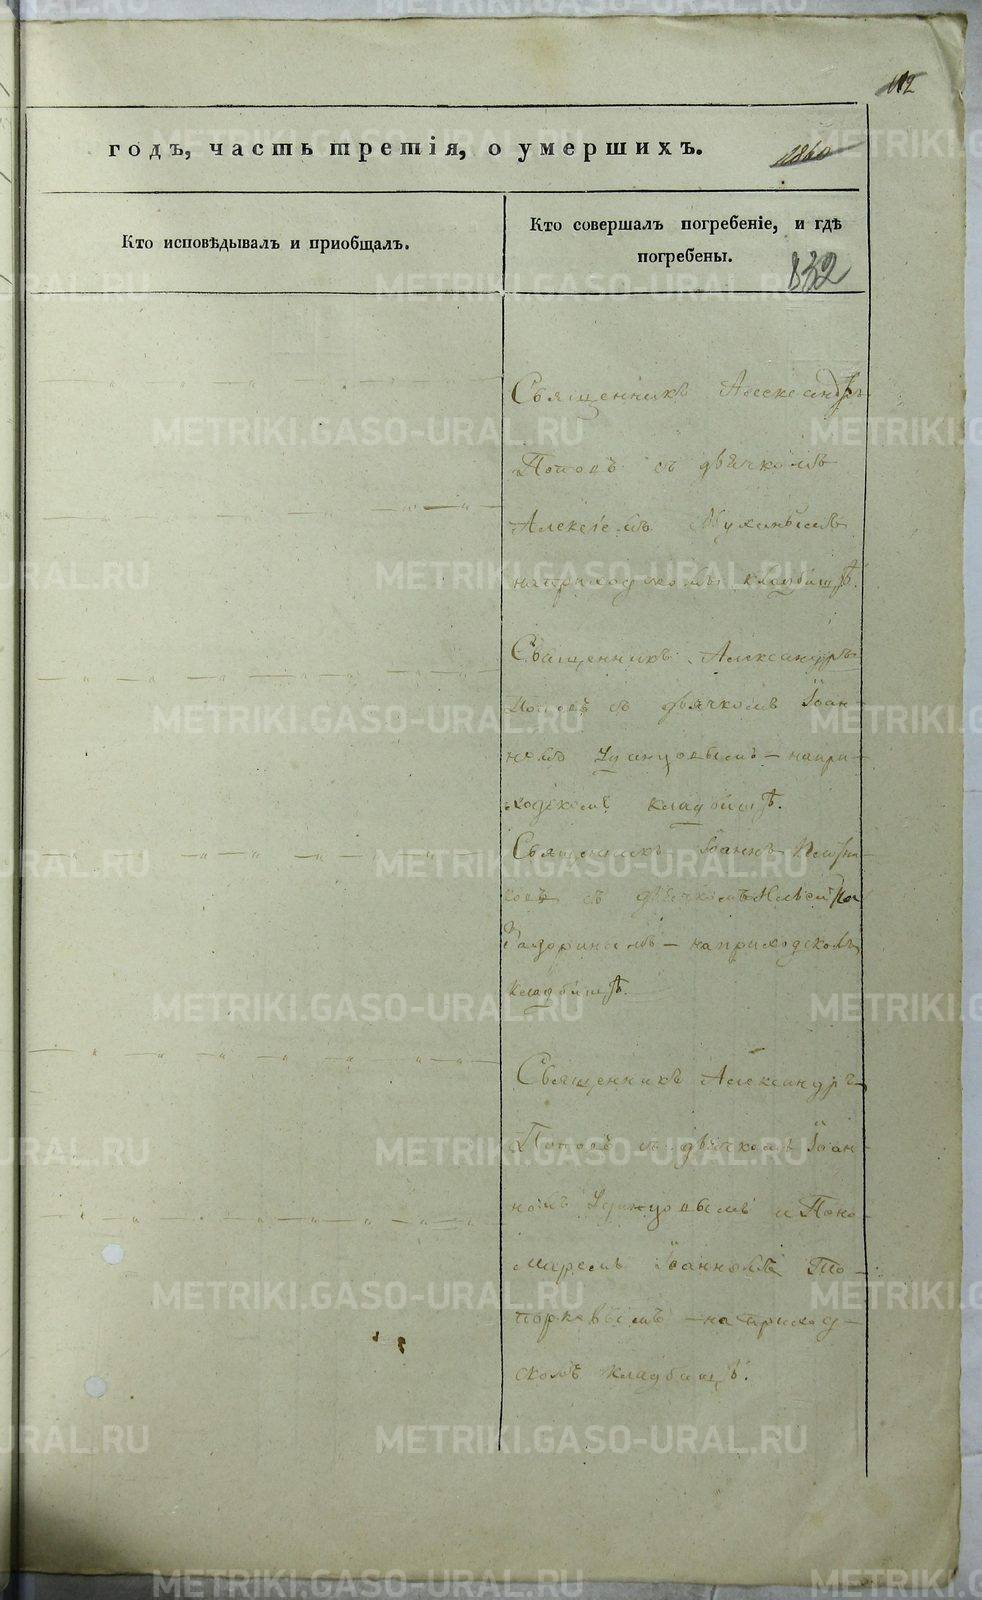 112
годъ, часть третія, о умершихъ.
1860
Кто исповѣдывалъ и приобщалъ.
Кто совершалъ погребеніе, и гдѣ
погребены.
832
Священникъ Александръ
Поповъ съ дьячкомъ
Алексіемъ
на приходскомъ кладбищѣ.
Священникъ Александръ
Поповъ съ дьячкомъ Іоан-
номъ – на при-
ходскомъ кладбищѣ.
Священникъ Іоаннъ
съ дьячкомъ
– на приходскомъ
кладбищѣ.
Священникъ Александръ
Поповъ съ дьячкомъ Іоан-
номъ и Поно-
маремъ Іоанномъ То-
порковымъ – на приход-
скомъ кладбищѣ.
METRIKI.GASO-URAL.RU